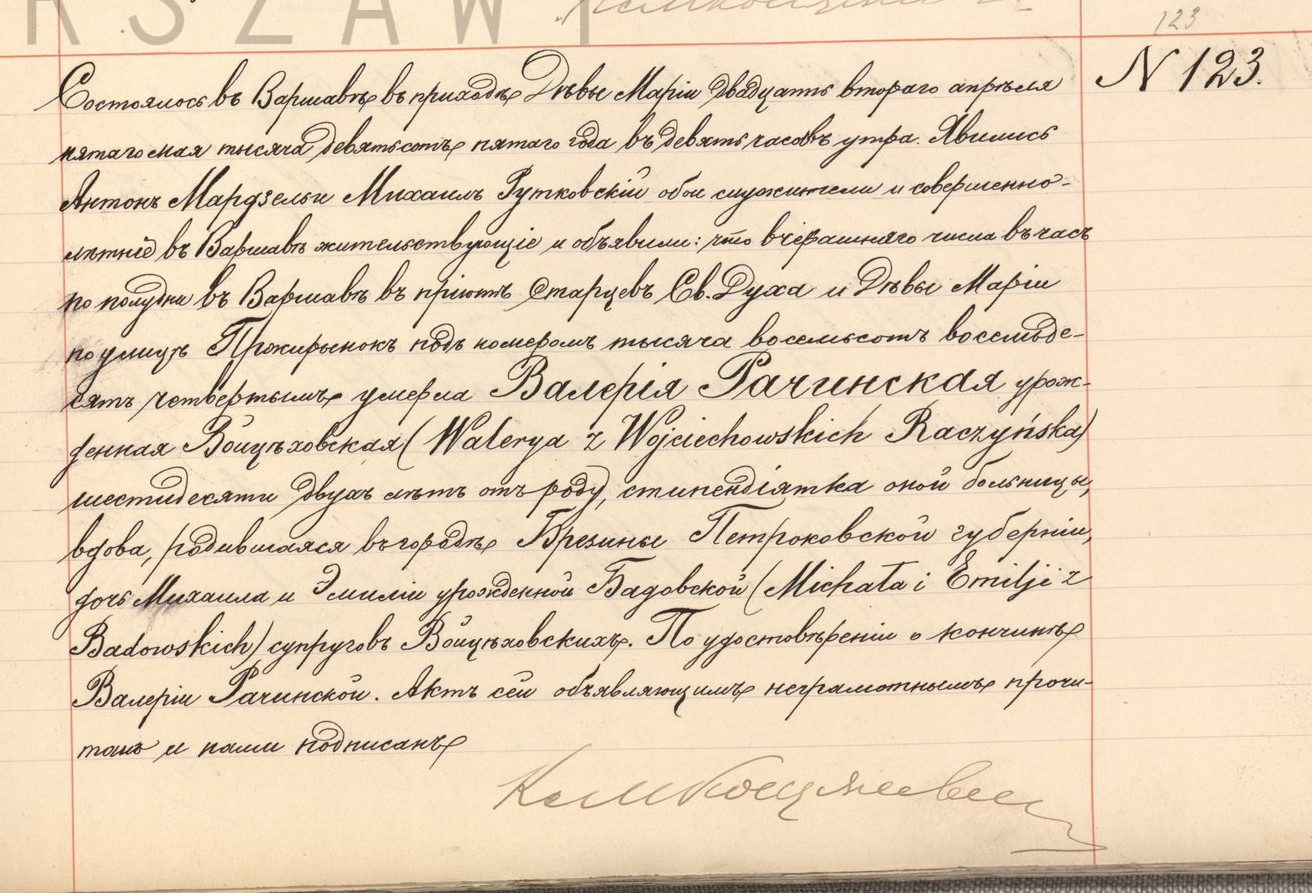 RSZAWI
123
N 123.
Состоялось въ Варшавѣ въ приходѣ Дѣвы Маріи двадцать втораго апрѣля
пятаго мая тысяча девятьсотъ пятаго года въ девять часовъ утра. Явились
Антонъ Мардзель и Михаилъ Рутковскій обои служители и совершенно-
лѣтніе въ Варшавѣ жительствующіе и объявили: что вчерашняго числа въ часъ
по полудни въ Варшавѣ въ пріютѣ Старцевъ Св. Духа и Дѣвы Маріи
по улицѣ Пржирынокъ подъ номеромъ тысяча восемьсотъ восемьде-
сятъ четвертымъ умерла Валерія Рачинская урож-
денная Войцѣховская (Walerya z Wojciechowskich Raczyńska)
шестидесяти двухъ лѣтъ отъ роду, стипендіятка оной больницы,
вдова, родившаяся въ городѣ Брезины Петроковской губерніи,
дочь Михаила и Эмиліи урожденной Бадовской (Michała i Emilji z
Badowskich) супруговъ Войцѣховскихъ. По удостовѣреніи о кончинѣ
Валеріи Рачинской. Актъ сей объявляющимъ неграмотнымъ прочи-
танъ и нами подписанъ